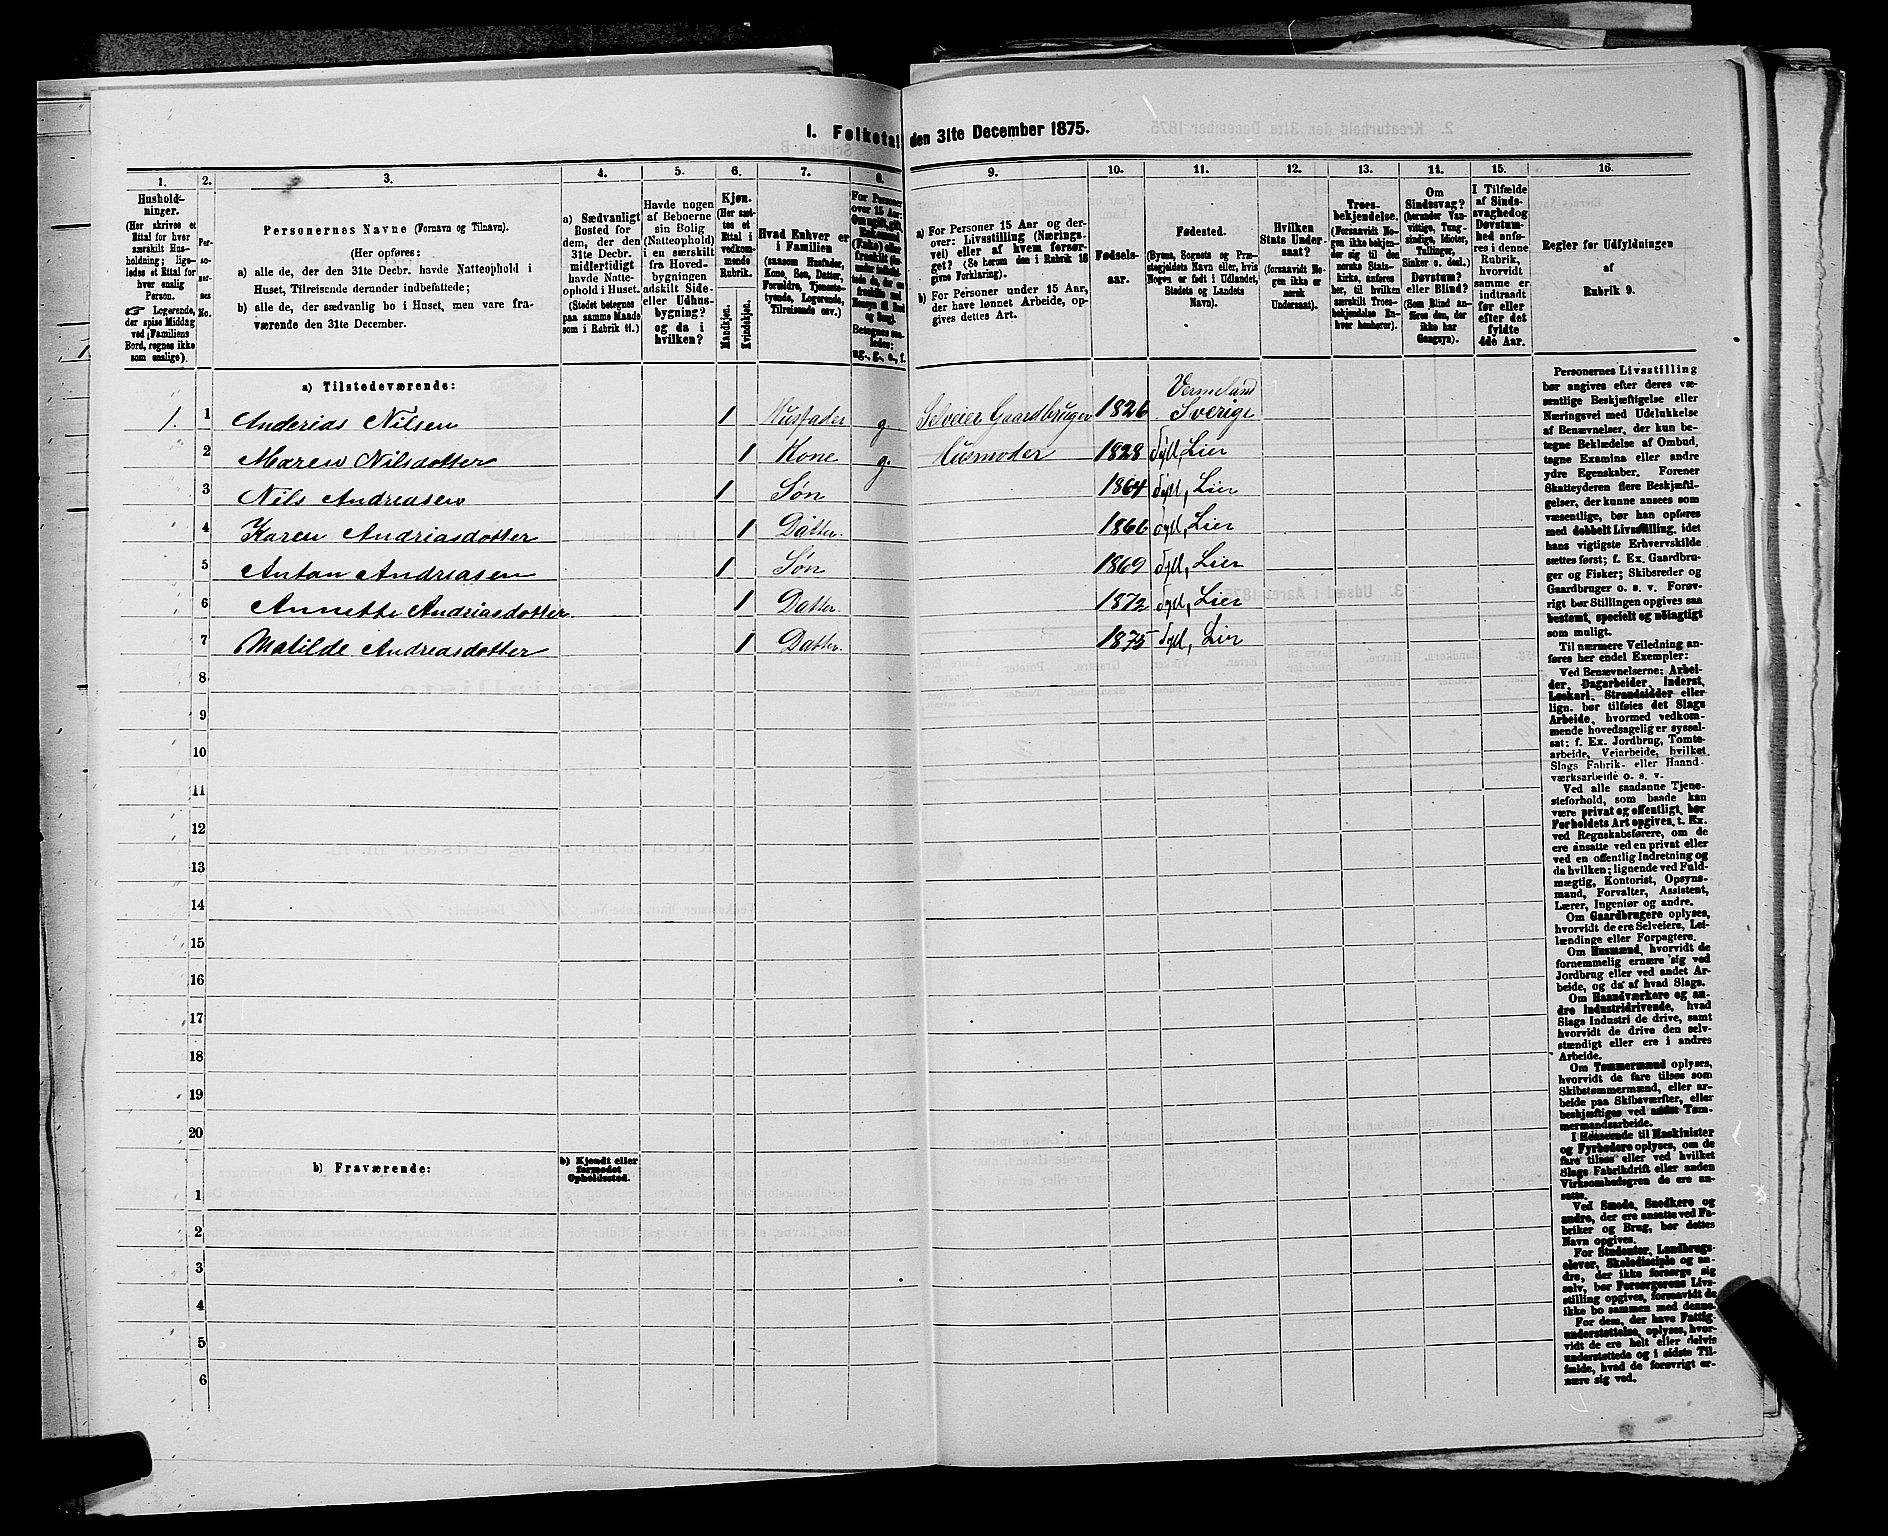 I. Folketal den 31te December 1875.
1. 2. 3. 4. 5. 6. 7. 8. 9. 10. 11. 12. 13. 14. 15. 16.
Hushold-
ninger.
(Her skrives et
Ettal for hver
særskilt Hus-
holdning; lige-
ledes et Ettal for
hver enslig
Person.
☞ Logerende,
der spise Middag
ved Familiens
Bord, regnes ikke
som enslige).
Per-
so-
ner-
nes
No.
Personernes Navne (Fornavn og Tilnavn).
(Her opføres:
a) alle de, der den 31te Decbr. havde Natteophold i
Huset, Tilreisende derunder indbefattede;
b) alle de, der sædvanlig bo i Huset, men vare fra-
værende den 31te December.
a) Sædvanligt
Bosted for
dem, der den
31te Decbr.
midlertidigt
havde Natte-
ophold i Huset.
(Stedet betegnes
paa samme Maade
som i Rubrik 11.)
Havde nogen
af Beboerne
sin Bolig
(Natteophold)
i en særskilt
fra Hoved-
bygningen
adskilt Side-
eller Udhus-
bygning?
og da i
hvilken?
Kjøn.
(Her sæt-
tes et
Ettal i
vedkom-
mende
Rubrik.
Mandkjøn.
Kvindekjøn.
Hvad Enhver er
i Familien
(saasom Husfader,
Kone, Søn, Datter,
Forældre, Tjeneste-
tyende, Logerende,
Tilreisende osv.)
For Personer
over 15 Aar:
Om ugift, gift,
Enkemand
(Enke) eller
fraskilt
Betegnes saa-
ledes:
ug., g., e., f.
a) For Personer 15 Aar og der-
over: Livsstilling (Nærings-
vei) eller af hvem forsør-
get? (Se herom den i Rubrik 16
givne Forklaring).
b) For Personer under 15 Aar,
der have lønnet Arbeide, op-
gives dettes Art.
Fødsels-
aar.
Fødested.
(Byens, Sognets og Præ-
stegjeldets Navn eller, hvis
Nogen er født i Udlandet,
Stedets og Landets
Navn).
Hvilken
Stats Under-
saat?
(forsaavidt No-
gen ikke er
norsk
Undersaat).
Troes-
bekjendelse.
(Forsaavidt No-
gen ikke bekjen-
der sig til den
norske Stats-
kirke, anføres
her, til hvilken
særskilt Troes-
bekjendelse En-
hver henhører).
Om
Sindssvag?
(herunder Van-
vittige, Tung-
sindige, Idioter,
Tullinger,
Sinker o. desl.)
Døvstum?
eller Blind?
(Som Blind an-
føres den, der
ikke har
Gangsyn).
I Tilfælde
af Sinds-
svaghed og
Døvstum-
hed anfø-
res i denne
Rubrik,
hvorvidt
samme er
indtraadt
før eller
efter det
fyldte
4de Aar.
Regler for Udfyldningen
af
Rubrik 9.
a) Tilstedeværende:
1. 1 Anderias Nilsen 1 Husfader g. Selveier Gaardbruger 1826 Vermeland Sverige
2 Maren Nilsdotter 1 Kone g. Husmoder 1828 Syll, Lier
3 Nils Andreasen 1 Søn 1864 Syll, Lier
4 Karen Andriasdotter 1 Datter. 1866 Syll, Lier
5 Anton Andreasen 1 Søn 1869 Syll, Lier
6 Annette Andriasdotter 1 Datter. 1872 Syll, Lier
7 Matilde Andreasdotter 1 Datter. 1875 Syll, Lier
8
9
10
11
12
13
14
15
16
17
18
19
20
b) Fraværende:
b) Kjendt eller
formodet
Opholdssted.
1
2
3
4
5
6
Personernes Livsstilling
bør angives efter deres væ-
sentlige Beskjæftigelse eller
Næringsvei med Udelukkelse
af Benævnelser, der kun be-
tegne Beklædelse af Ombud,
tagne Examina eller andre
ydre Egenskaber. Forener
Skatteyderen flere Beskjæfti-
gelser, der kunne ansees som
væsentlige, bør han opføres
med dobbelt Livsstilling, idet
hans vigtigste Erhvervskilde
sættes først; f. Ex. Gaardbru-
ger og Fisker; Skibsreder og
Gaardbruger o. s. v. Forøv-
rigt bør Stillingen opgives saa
bestemt, specielt og nøiagtigt
som muligt.
Til nærmere Veiledning an-
føres her endel Exempler:
Ved Benævnelserne: Arbei-
der, Dagarbeider, Inderst,
Løskarl, Strandsidder eller
lign. bør tilføies det Slags
Arbeide, hvormed vedkom-
mende hovedsagelig er syssel-
sat; f. Ex. Jordbrug, Tomte-
arbeide, Veiarbeide, hvilket
Slags Fabrik- eller Haand-
værksarbeide o. s. v.
Ved alle saadanne Tjene-
steforhold, som baade kan
være privat og offentligt, bør
Forholdets Art opgives, t. Ex.
ved Regnskabsførere, om de
ere ansatte ved en privat eller
ved en offentlig Indretning og
da hvilken; lignende ved Fuld-
mægtig, Kontorist, Opsyns-
mand, Forvalter, Assistent,
Lærer, Ingeniør og andre.
Om Gaardbrugere oplyses,
hvorvidt de ere Selveiere, Lei-
lændinge eller Forpagtere.
Om Husmænd, hvorvidt de
fornemmelig ernære sig ved
Jordbrug eller ved andet Ar-
beide, og da af hvad Slags.
Om Haandværkere og an-
dre Industridrivende, hvad
Slags Industri de drive, samt
hvorvidt de drive den selv-
stændigt eller ere i andres
Arbeide.
Om Tømmermænd oplyses,
hvorvidt de fare tilsøs som
Skibstømmermænd, eller ar-
beide paa Skibsværfter, eller
beskjæftiges ved andet Tøm-
mermandsarbeide.
I Henseende til Maskinister
og Fyrbødere oplyses, om de
fare tilsøs eller ved hvilket
Slags Fabrikdrift eller anden
Virksomhedsgren de ere an-
satte.
Ved Smede, Snedkere og
andre, der ere ansatte ved Fa-
briker og Brug, bør dettes
Navn opgives.
For Studenter, Landbrugs-
elever, Skoledisciple og an-
dre, der ikke forsørge sig
selv, bør Forsørgerens Livs-
stilling opgives, forsaavidt de
ikke bo sammen med denne.
For dem, der have Fattig-
understøttelse, oplyses, hvor-
vidt de ere helt eller delvis
understøttede og i sidste Til-
fælde, hvad de forøvrigt er-
nære sig ved.